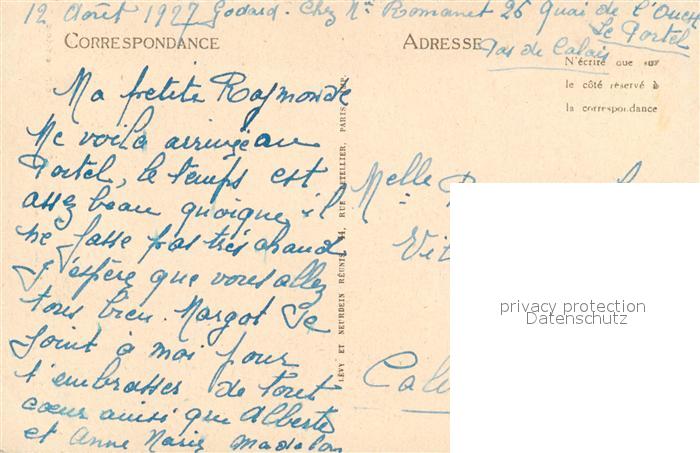 12 Août 1927 Godard. Chez Mr Romanet 26 Quai de l'Ouest
Le Portel
Pas de Calais
CORRESPONDANCE
ADRESSE
N'écrire que sur
le côté réservé à
la correspondance
Ma petite Raymonde
Me voilà arrivée au
Portel, le temps est
assez beau quoique il
ne fasse pas très chaud
J'espère que vous allez
tous bien. Margot se
joint à moi pour
t'embrasser de tout
cœur ainsi que Alberte
et Anne Marie Madelon
LÉVY ET NEURDEIN RÉUNIS, 44, RUE LETELLIER, PARIS
Melle
Vit
Cal
privacy protection
Datenschutz